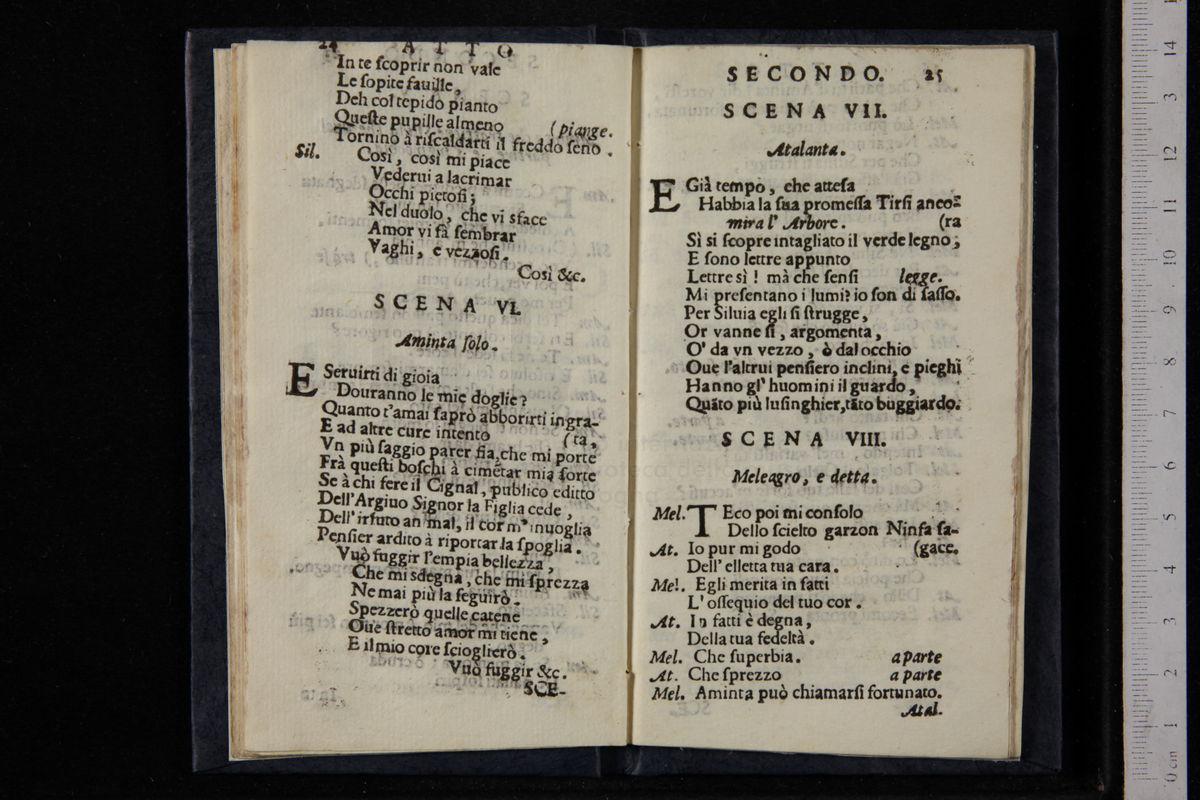 24 ATTO
In te ſcoprir non vale
Le ſopite fauille,
Deh col tepido pianto
Queſte pupille almeno (piange.
Tornino à riſcaldarti il freddo ſeno.
Sil. Così, così mi piace
Vederui a lacrimar
Occhi pietoſi;
Nel duolo, che vi sface
Amor vi fà ſembrar
Vaghi, e vezzoſi.
Così &c.
SCENA VI.
Aminta ſolo.
E Seruirti di gioia
Douranno le mie doglie?
Quanto t'amai ſaprò abborirti ingra-
E ad altre cure intento (ta,
Vn più ſaggio parer fia, che mi porte
Frà queſti boſchi à cimẽtar mia ſorte
Se à chi fere il Cignal, publico editto
Dell'Argiuo Signor la Figlia cede,
Dell'irſuto an mal, il cor m'inuoglia
Penſier ardito à riportar la ſpoglia.
Vuò fuggir l'empia bellezza,
Che mi sdegna, che mi ſprezza
Ne mai più la ſeguirò.
Spezzerò quelle catene
Oue ſtretto amor mi tiene,
E il mio core ſcioglierò.
Vuò fuggir &c.
SCE-
SECONDO. 25
SCENA VII.
Atalanta.
E Già tempo, che atteſa
Habbia la ſua promeſſa Tirſi anco-
mira l' Arbore. (ra
Sì si ſcopre intagliato il verde legno;
E ſono lettre appunto
Lettre sì! mà che ſenſi legge.
Mi preſentano i lumi? io ſon di ſaſſo.
Per Siluia egli ſi ſtrugge,
Or vanne ſi, argomenta,
O' da vn vezzo, ò dal occhio
Oue l'altrui penſiero inclini, e pieghi
Hanno gl' huomini il guardo,
Quãto più luſinghier, tãto buggiardo.
SCENA VIII.
Meleagro, e detta.
Mel. TEco poi mi conſolo
Dello ſcielto garzon Ninfa ſa-
At. Io pur mi godo (gace.
Dell' elletta tua cara.
Mel. Egli merita in fatti
L' oſſequio del tuo cor.
At. In fatti è degna,
Della tua fedeltà.
Mel. Che ſuperbia. a parte
At. Che ſprezzo a parte
Mel. Aminta può chiamarſi fortunato.
Atal.
14
13
12
11
10
9
8
7
6
5
4
3
2
1
0 cm